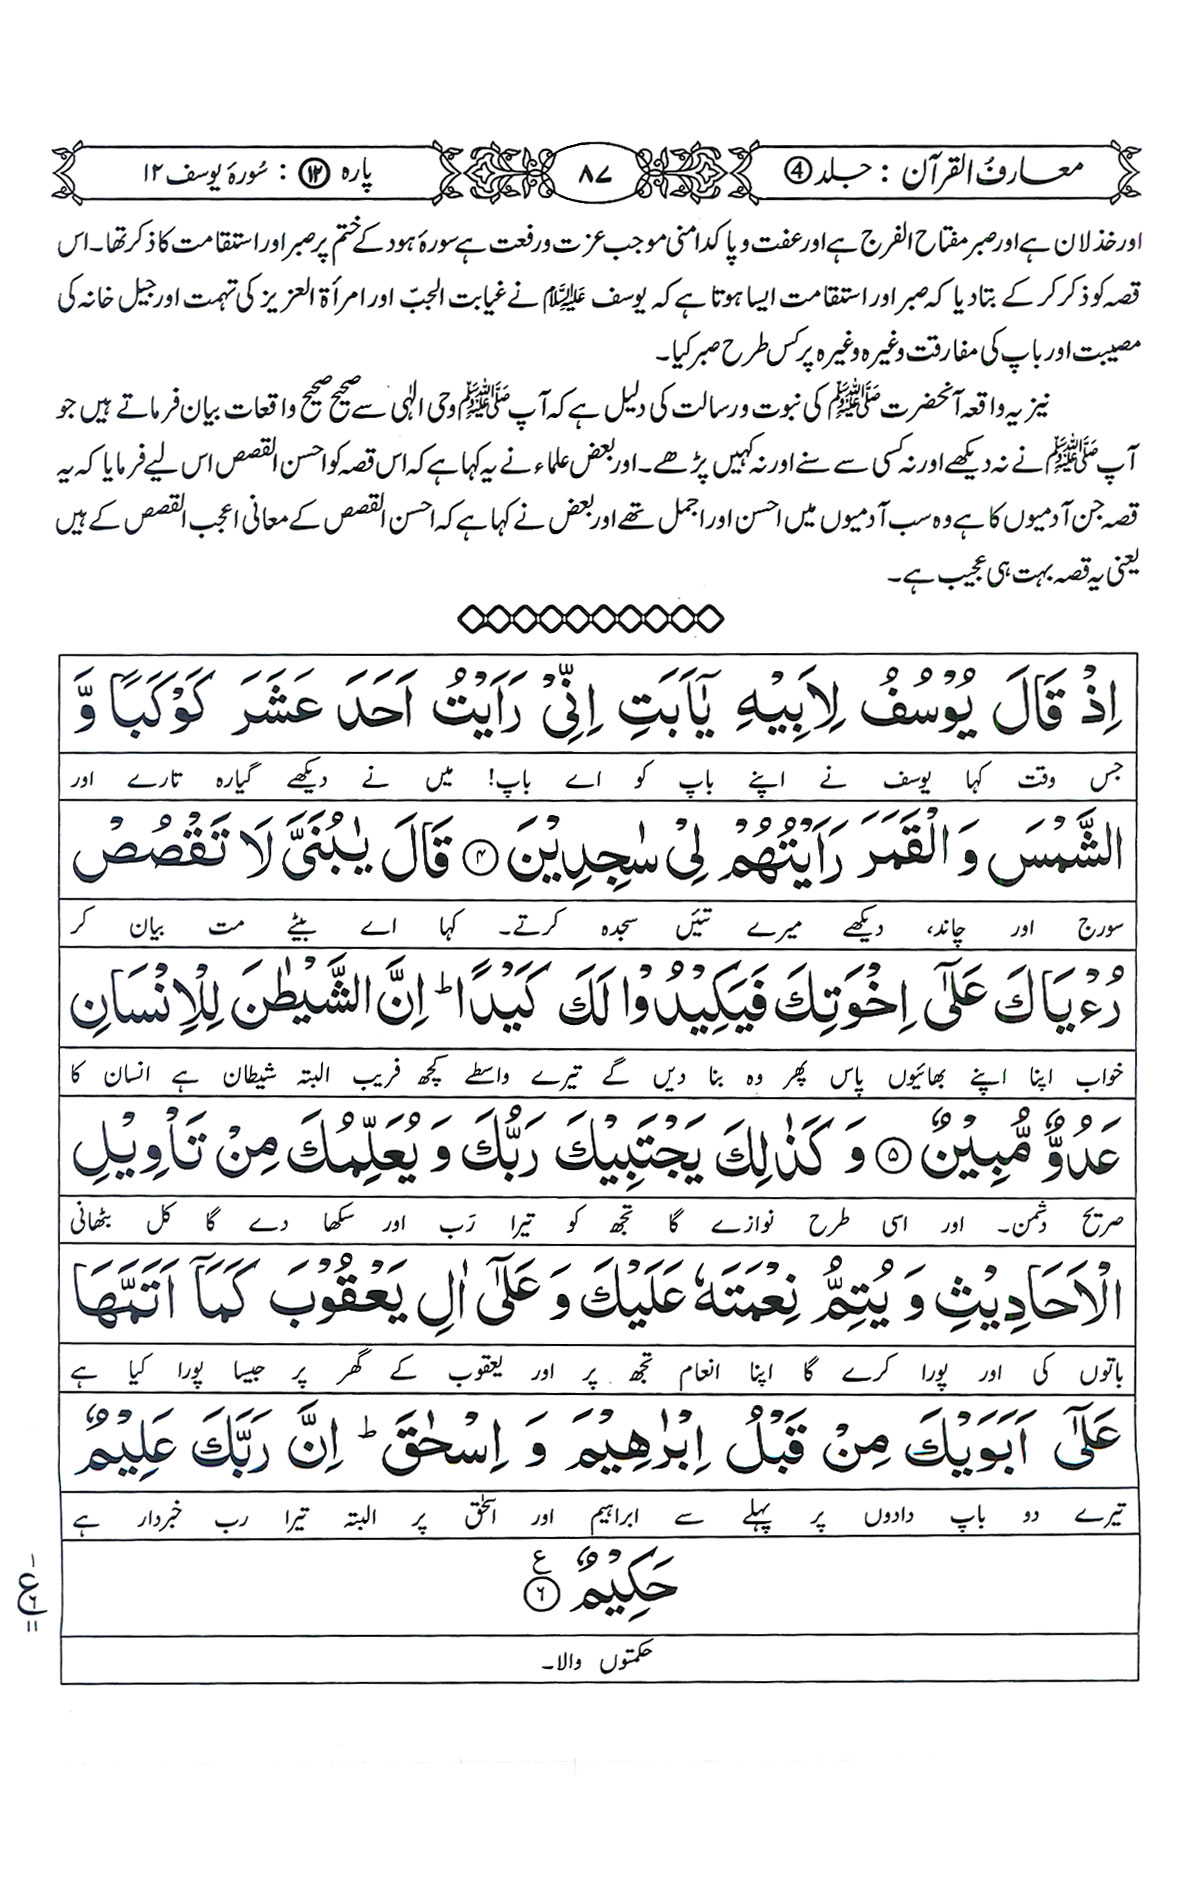 معارف القرآن : جلد ④
۸۷
پارہ ⑫ : سُورۂ یوسف ۱۲
اور خذلان ہے اور صبر مفتاح الفرج ہے اور عفت و پاکدامنی موجب عزت ورفعت ہے سورۂ ہود کے ختم پر صبر اور استقامت کا ذکر تھا۔ اس
قصہ کو ذکر کر کے بتادیا کہ صبر اور استقامت ایسا ہوتا ہے کہ یوسف علیہ السلام نے غیابت الجبّ اور امرأۃ العزیز کی تہمت اور جیل خانہ کی
مصیبت اور باپ کی مفارقت وغیرہ وغیرہ پر کس طرح صبر کیا۔
نیز یہ واقعہ آنحضرت ﷺ کی نبوت ورسالت کی دلیل ہے کہ آپ ﷺ وحی الٰہی سے صحیح صحیح واقعات بیان فرماتے ہیں جو
آپ ﷺ نے نہ دیکھے اور نہ کسی سے سنے اور نہ کہیں پڑھے۔ اور بعض علماء نے یہ کہا ہے کہ اس قصہ کو احسن القصص اس لیے فرمایا کہ یہ
قصہ جن آدمیوں کا ہے وہ سب آدمیوں میں احسن اور اجمل تھے اور بعض نے کہا ہے کہ احسن القصص کے معانی اعجب القصص کے ہیں
یعنی یہ قصہ بہت ہی عجیب ہے۔
اِذْ قَالَ يُوْسُفُ لِاَبِيْهِ يٰۤاَبَتِ اِنِّىْ رَاَيْتُ اَحَدَ عَشَرَ كَوْكَبًا وَّ
جس وقت کہا یوسف نے اپنے باپ کو اے باپ! میں نے دیکھے گیارہ تارے اور
الشَّمْسَ وَ الْقَمَرَ رَاَيْتُهُمْ لِىْ سٰجِدِيْنَ ۴ قَالَ يٰبُنَىَّ لَا تَقْصُصْ
سورج اور چاند، دیکھے میرے تئیں سجدہ کرتے۔ کہا اے بیٹے مت بیان کر
رُءْيَاكَ عَلٰٓى اِخْوَتِكَ فَيَكِيْدُوْا لَكَ كَيْدًا ؕ اِنَّ الشَّيْطٰنَ لِلْاِنْسَانِ
خواب اپنا اپنے بھائیوں پاس پھر وہ بنا دیں گے تیرے واسطے کچھ فریب البتہ شیطان ہے انسان کا
عَدُوٌّ مُّبِيْنٌ ۵ وَ كَذٰلِكَ يَجْتَبِيْكَ رَبُّكَ وَ يُعَلِّمُكَ مِنْ تَاْوِيْلِ
صریح دشمن۔ اور اسی طرح نوازے گا تجھ کو تیرا رَب اور سکھا دے گا کل بٹھانی
الْاَحَادِيْثِ وَ يُتِمُّ نِعْمَتَهٗ عَلَيْكَ وَ عَلٰٓى اٰلِ يَعْقُوْبَ كَمَاۤ اَتَمَّهَا
باتوں کی اور پورا کرے گا اپنا انعام تجھ پر اور یعقوب کے گھر پر جیسا پورا کیا ہے
عَلٰٓى اَبَوَيْكَ مِنْ قَبْلُ اِبْرٰهِيْمَ وَ اِسْحٰقَ ؕ اِنَّ رَبَّكَ عَلِيْمٌ
تیرے دو باپ دادوں پر پہلے سے ابراہیم اور اسحٰق پر البتہ تیرا رب خبردار ہے
حَكِيْمٌ ۶ ع
حکمتوں والا۔